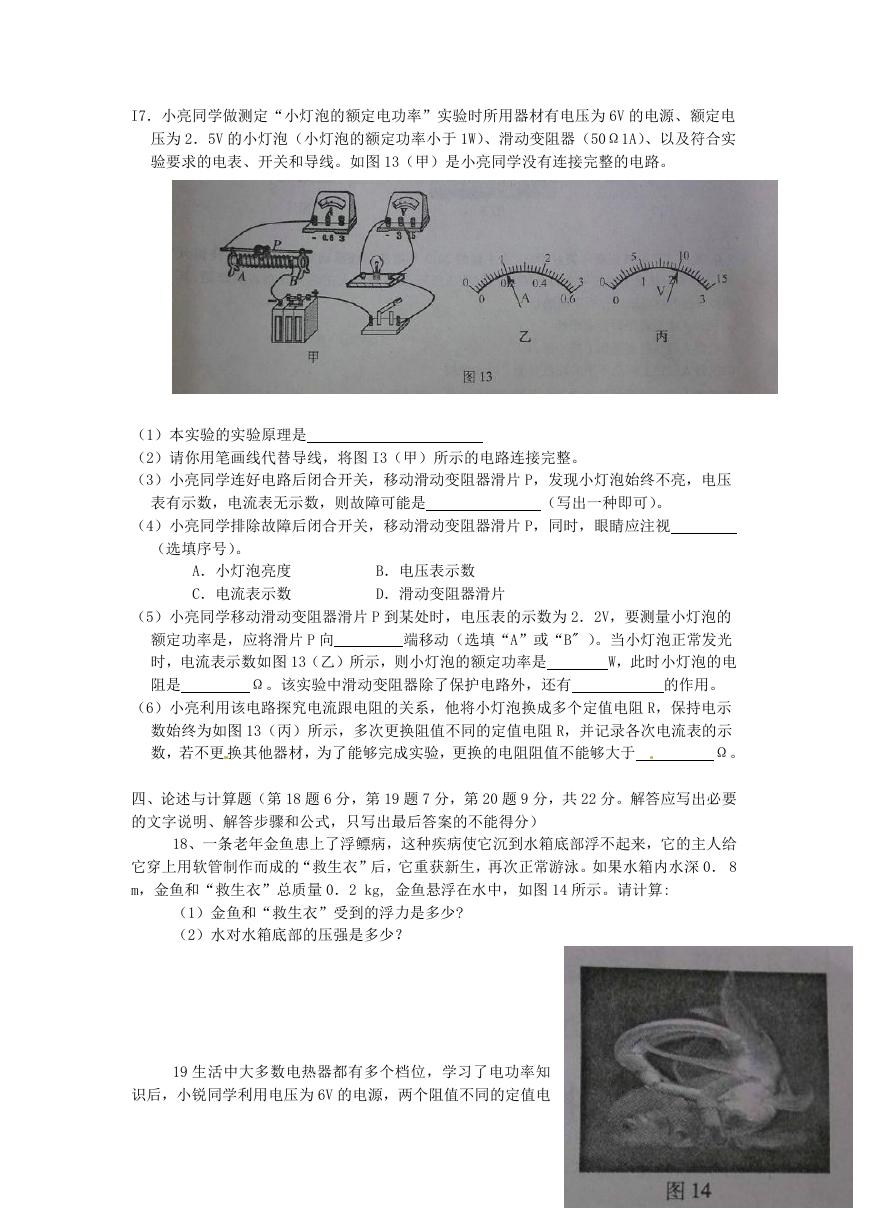 I7. 小亮同学做测定“小灯泡的额定电功率”实验时所用器材有电压为 6V 的电源、额定电
压为 2. 5V 的小灯泡（小灯泡的额定功率小于 1W）、滑动变阻器（50Ω1A）、以及符合实
验要求的电表、开关和导线。如图 13（甲）是小亮同学没有连接完整的电路。
A
V
- 0.6 3
- 3 15
P
A
B
甲
0 1 2 3
0 0.2 0.4 0.6
A
乙
0 5 10 15
0 1 2 3
V
丙
图 13
（1）本实验的实验原理是
（2）请你用笔画线代替导线，将图 I3（甲）所示的电路连接完整。
（3）小亮同学连好电路后闭合开关，移动滑动变阻器滑片 P，发现小灯泡始终不亮，电压
表有示数，电流表无示数，则故障可能是 （写出一种即可）。
（4）小亮同学排除故障后闭合开关，移动滑动变阻器滑片 P，同时，眼睛应注视
（选填序号）。
A. 小灯泡亮度 B. 电压表示数
C. 电流表示数 D. 滑动变阻器滑片
（5）小亮同学移动滑动变阻器滑片 P 到某处时，电压表的示数为 2. 2V，要测量小灯泡的
额定功率是，应将滑片 P 向 端移动（选填“A”或“B″ ）。当小灯泡正常发光
时，电流表示数如图 13（乙）所示，则小灯泡的额定功率是 W，此时小灯泡的电
阻是 Ω。该实验中滑动变阻器除了保护电路外，还有 的作用。
（6）小亮利用该电路探究电流跟电阻的关系，他将小灯泡换成多个定值电阻 R，保持电示
数始终为如图 13（丙）所示，多次更换阻值不同的定值电阻 R，并记录各次电流表的示
数，若不更换其他器材，为了能够完成实验，更换的电阻阻值不能够大于 Ω。
四、论述与计算题（第 18 题 6 分，第 19 题 7 分，第 20 题 9 分，共 22 分。解答应写出必要
的文字说明、解答步骤和公式，只写出最后答案的不能得分）
18、一条老年金鱼患上了浮鳔病，这种疾病使它沉到水箱底部浮不起来，它的主人给
它穿上用软管制作而成的“救生衣”后，它重获新生，再次正常游泳。如果水箱内水深 0. 8
m，金鱼和“救生衣”总质量 0. 2 kg, 金鱼悬浮在水中，如图 14 所示。请计算:
（1）金鱼和“救生衣”受到的浮力是多少?
（2）水对水箱底部的压强是多少？
19 生活中大多数电热器都有多个档位，学习了电功率知
识后，小锐同学利用电压为 6V 的电源，两个阻值不同的定值电
图 14